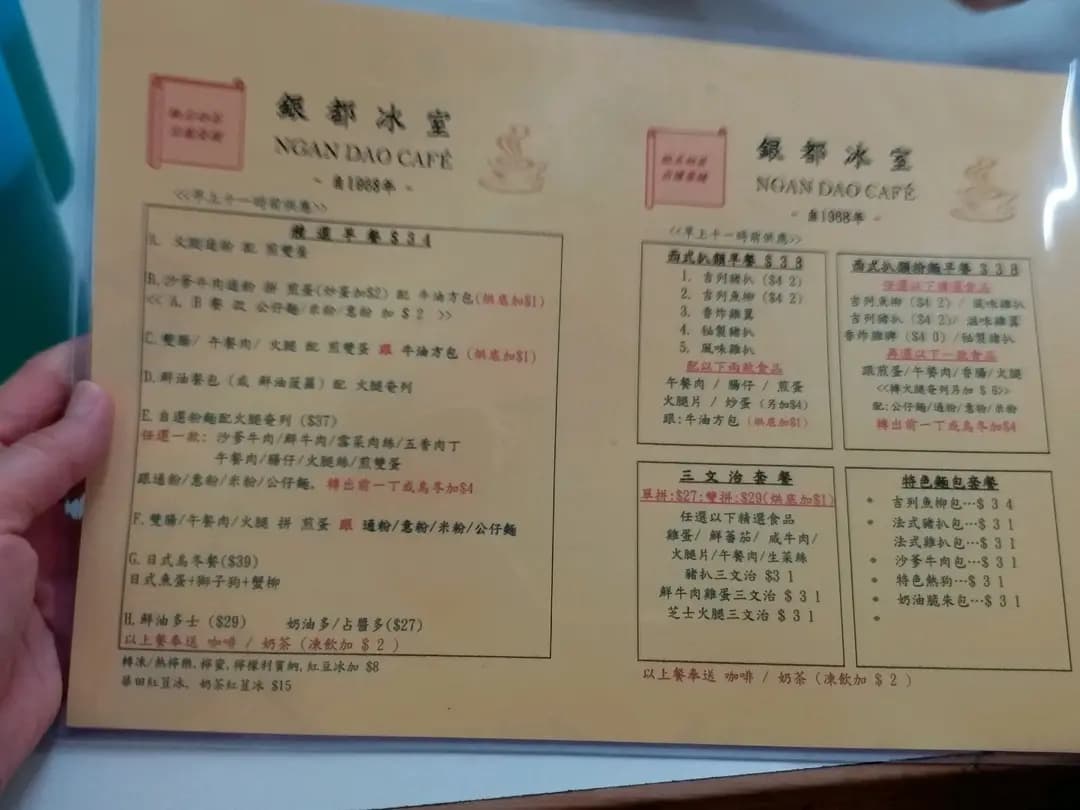 銀都冰室
NGAN DAO CAFÉ
~ 自1968年 ~
<<早上十一時前供應>>
早餐$34
A. 火腿通粉 配 煎雙蛋
B.沙爹牛肉通粉 拼 煎蛋(炒蛋加$2) 配 牛油方包(烘底加$1)
<< A, B 餐 改 公仔麵/米粉/意粉 加 $ 2 >>
C.雙腸/ 午餐肉/ 火腿 配 煎雙蛋 跟 牛油方包 (烘底加$1)
D.鮮油餐包 (或 鮮油菠蘿) 配 火腿奄列
E.自選粉麵配火腿奄列 ($37)
任選一款: 沙爹牛肉/鮮牛肉/雪菜肉絲/五香肉丁
午餐肉/腸仔/火腿絲/煎雙蛋
跟通粉/意粉/米粉/公仔麵, 轉出前一丁或烏冬加$4
F.雙腸/午餐肉/火腿 拼 煎蛋 跟 通粉/意粉/米粉/公仔麵
G.日式烏冬餐($39)
日式魚蛋+獅子狗+蟹柳
H.鮮油多士 ($29) 奶油多/占醬多($27)
以上餐奉送 咖啡 / 奶茶 (凍飲加 $ 2 )
轉凍/熱檸樂,檸蜜,檸檬利賓納,紅豆冰加 $8
紅荳冰, 奶茶紅荳冰 $15
銀都冰室
NGAN DAO CAFÉ
~ 自1968年 ~
<<早上十一時前供應>>
西式扒類早餐 $ 3 8
1. 吉列豬扒 ($4 2)
2. 吉列魚柳 ($4 2)
3. 香炸雞翼
4. 秘製豬扒
5. 風味雞扒
配以下兩款食品
午餐肉 / 腸仔 / 煎蛋
火腿片 / 炒蛋 (另加$4)
跟:牛油方包 (烘底加$1)
西式扒類粉麵早餐 $ 3 8
任選以下精選食品
吉列魚柳 ($4 2) / 風味雞扒
吉列豬扒 ($4 2)/ 滋味雞翼
香炸雞脾 ($4 0) /秘製豬扒
再選以下一款食品
跟煎蛋/午餐肉/香腸/火腿
<<轉火腿奄列另加 $ 6>>
配:公仔麵/通粉/意粉/米粉
轉出前一丁或烏冬加$4
三 文 治 套 餐
單拼:$27;雙拼:$29(烘底加$1)
任選以下精選食品
雞蛋/ 鮮蕃茄/ 咸牛肉/
火腿片/午餐肉/生菜絲
豬扒三文治 $3 1
鮮牛肉雞蛋三文治 $ 3 1
芝士火腿三文治 $ 3 1
特色麵包套餐
吉列魚柳包…$ 3 4
法式豬扒包…$ 3 1
法式雞扒包…$ 3 1
沙爹牛肉包…$ 3 1
特色熱狗…$ 3 1
奶油脆朱包…$ 3 1
以上餐奉送 咖啡 / 奶茶 (凍飲加 $ 2 )